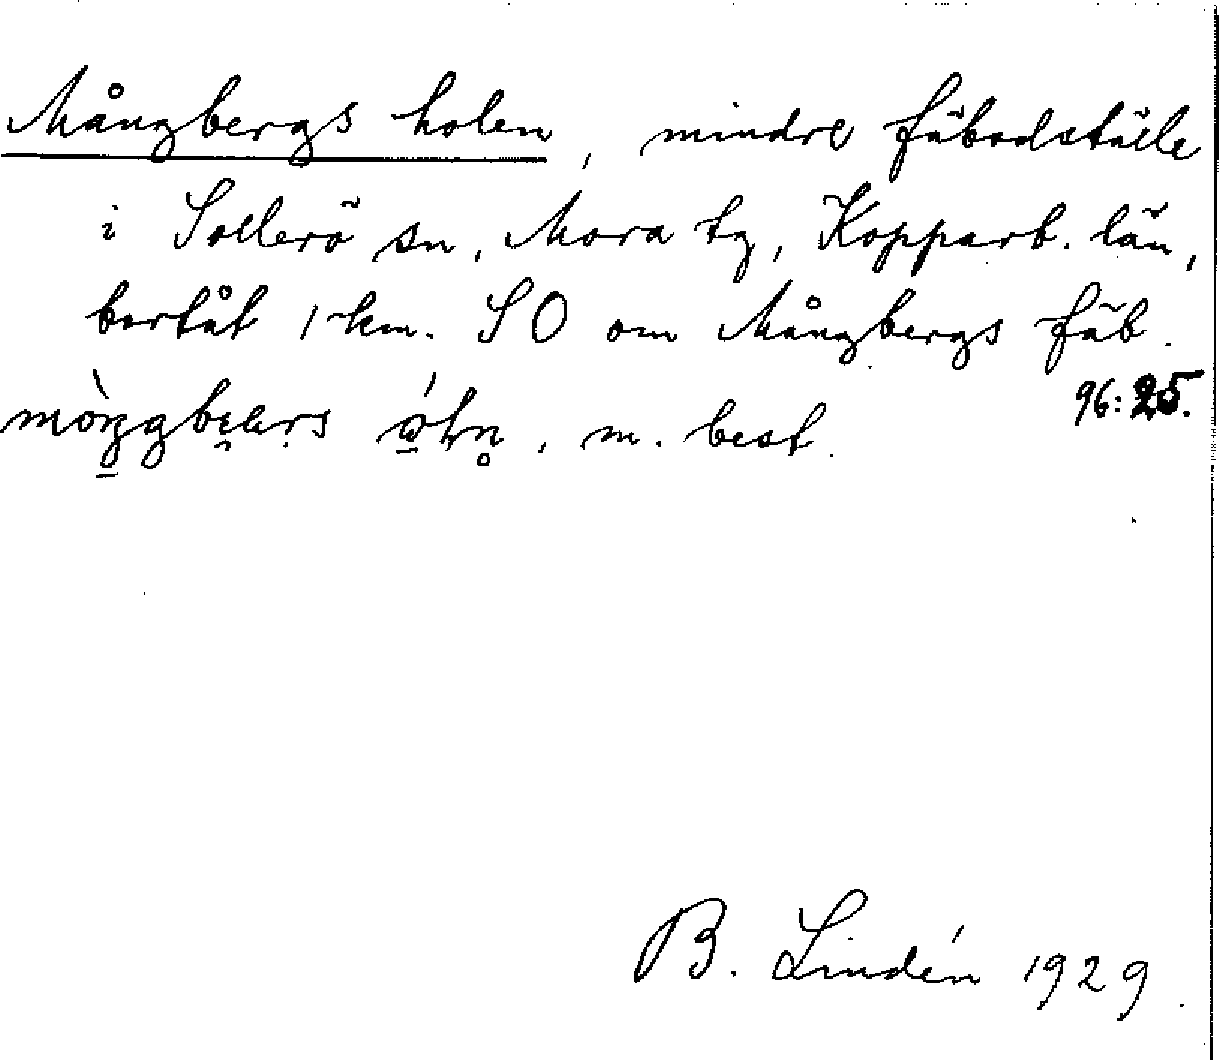 Mångbergs holen, mindre fäbodställe
i Sollerö sn, Mora tg, Kopparb. län,
bortåt 1 km. SO om Mångbergs fäb.
96:25.
m. best.
B. Lindén 1929.